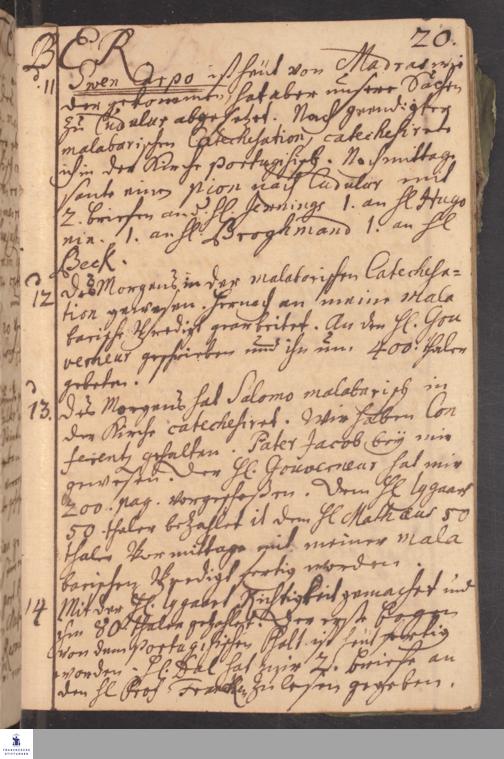 BER 20.
d. 11 Swen Carpo ist heüt von Madras wie
der gekommen hat aber unsere Sachen
zu Cudulur abgesetzet. Nach geendigter
malabarischen Catechisation, catechisirete
ich in der Kirche portugisisch. Nachmittags
sante einen pion nach Cudulur mit
2. briefen an d. Hl Jennings 1. an Hl Hugo
nin. 1. an Hl Broghmand 1. an Hl
Beck.
d. 12 des Morgens in der malabarischen Catechisa=
tion gewesen. hernach an meine mala
barische Predigt gearbeitet. An den Hl. Gou
verneur geschrieben und ihn um 400. thaler
gebeten.
d. 13. des Morgens hat Salomo malabarisch in
der Kirche catechisiret. Wir haben Con
ferentz gehalten. Pater Jacob beÿ mir
gewesen. Der Hl. Gouverneur hat mir
200. pag. vorgeschossen. dem Hl Uggaard
50 thaler bezahlet it dem Hl Mathæus 50
thaler Vormittags mit meiner mala
barischen Predigt fertig worden.
14 Mit der Hl. Uggaard Richtigkeit gemachet und
ihm 80 thaler gezahlet. Der erste bogen
von dem portugisischen Psalt. ist heüt fertig
worden. Hl. Dal hat mir 2. briefe an
den Hl Prof Francken zu lesen gegeben.
FRANCKESCHE
STIFTUNGEN